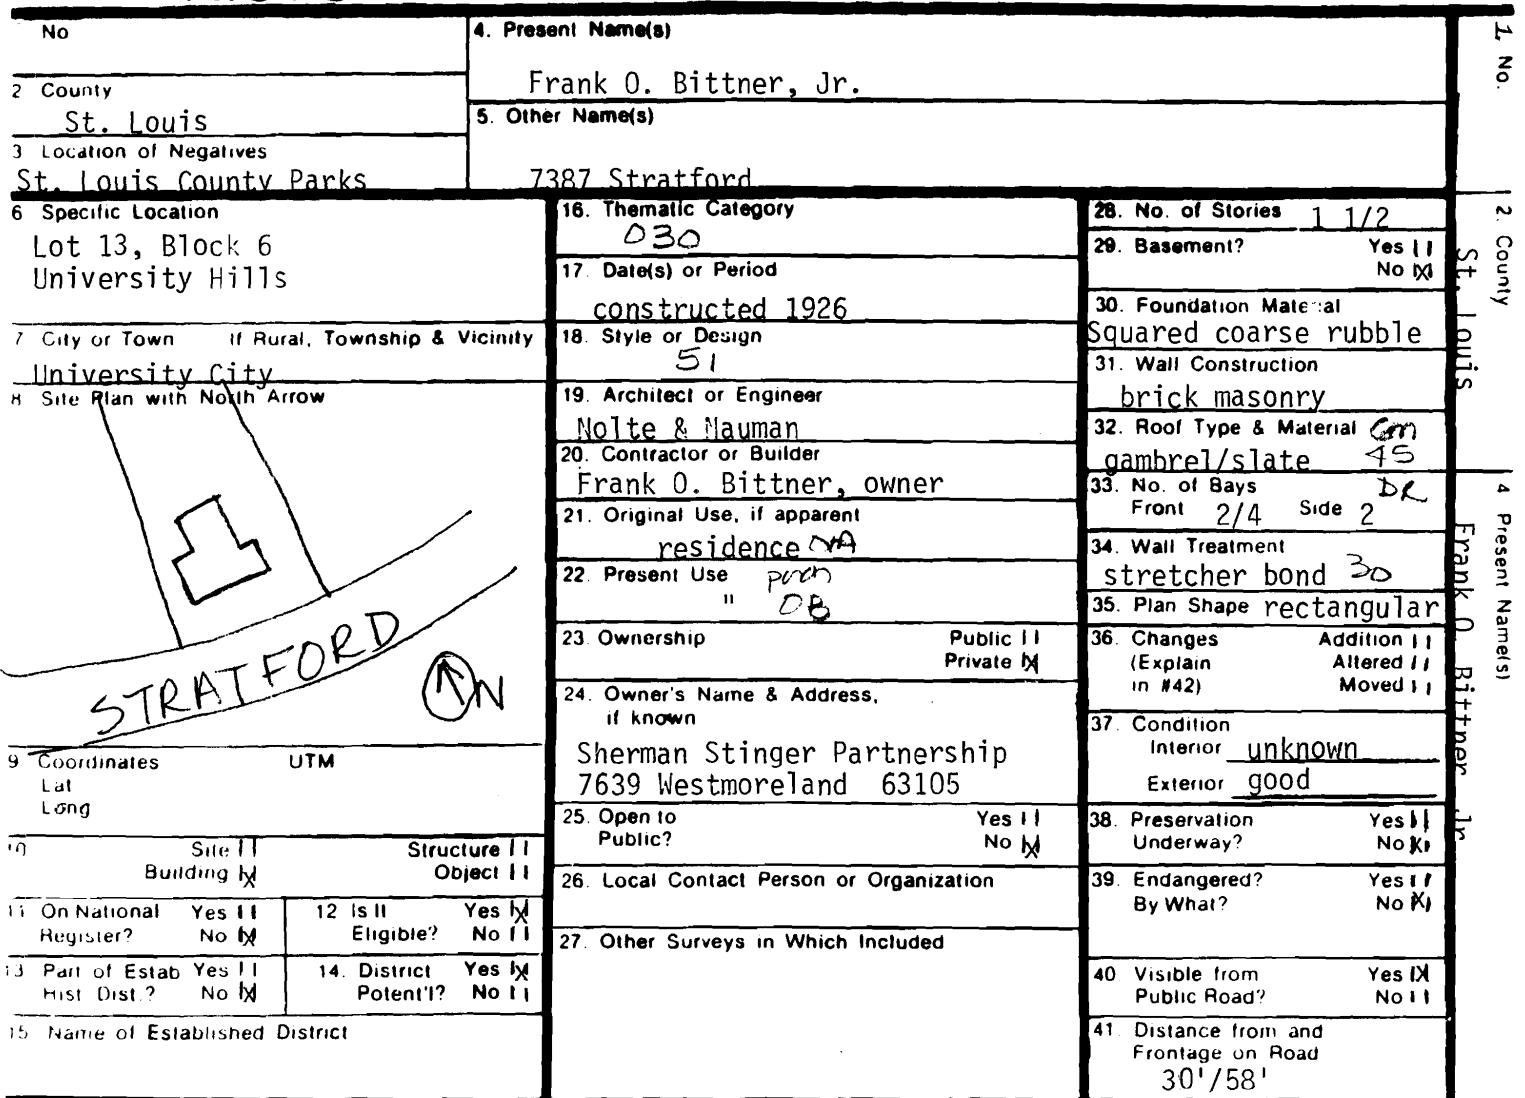 No
2 County
St. Louis
3 Location of Negatives
St. Louis County Parks
4. Present Name(s)
Frank O. Bittner, Jr.
5. Other Name(s)
7387 Stratford
6 Specific Location
Lot 13, Block 6
University Hills
7 City or Town If Rural, Township & Vicinity
University City
8 Site Plan with North Arrow
STRATFORD
N
9 Coordinates UTM
Lat
Long
10 Site Structure
Building X Object
11 On National Yes
Register? No X
12 Is It Yes X
Eligible? No
13 Part of Estab Yes
Hist Dist.? No X
14. District Yes X
Potent'l? No
15 Name of Established District
16. Thematic Category
030
17. Date(s) or Period
constructed 1926
18. Style or Design
51
19. Architect or Engineer
Nolte & Nauman
20. Contractor or Builder
Frank O. Bittner, owner
21. Original Use, if apparent
residence NA
22. Present Use porch
" OB
23. Ownership Public
Private X
24. Owner's Name & Address,
if known
Sherman Stinger Partnership
7639 Westmoreland 63105
25. Open to Yes
Public? No X
26. Local Contact Person or Organization
27. Other Surveys in Which Included
28. No. of Stories 1 1/2
29. Basement? Yes
No X
30. Foundation Material
Squared coarse rubble
31. Wall Construction
brick masonry
32. Roof Type & Material Gm
gambrel/slate 45
33. No. of Bays DR
Front 2/4 Side 2
34. Wall Treatment
stretcher bond 30
35. Plan Shape rectangular
36. Changes Addition
(Explain Altered
in #42) Moved
37. Condition
Interior unknown
Exterior good
38. Preservation Yes
Underway? No X
39. Endangered? Yes
By What? No X
40 Visible from Yes X
Public Road? No
41. Distance from and
Frontage on Road
30'/58'
1. No.
2. County
St. Louis
4 Present Name(s)
Frank O Bittner Jr